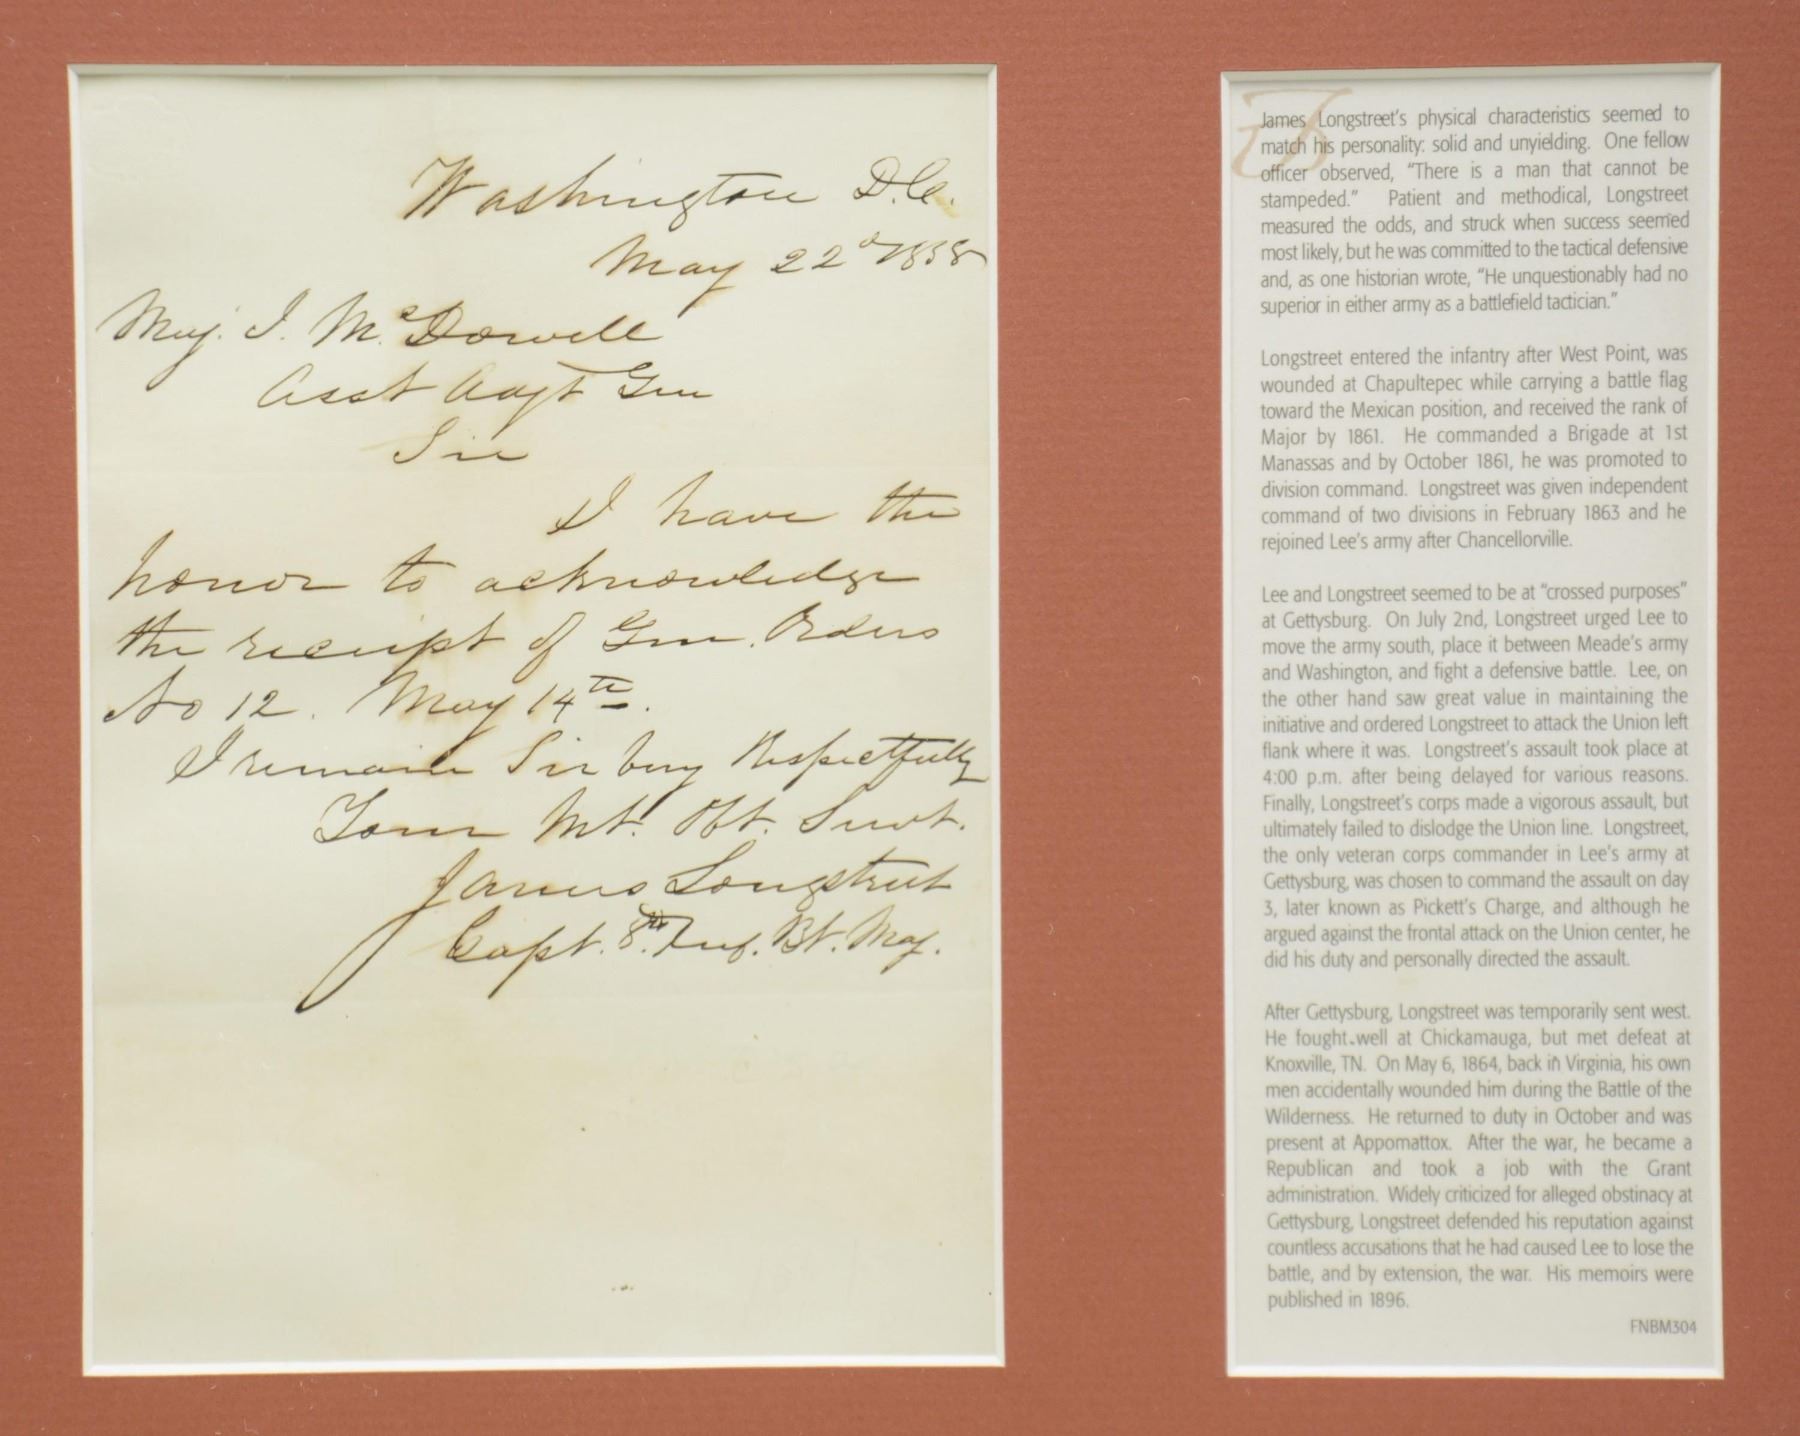 Washington D.C.
May 22d 1858
Maj. I. McDowell
Asst Adjt Gen
Sir
I have the
honor to acknowledge
the receipt of Gen. Orders
No 12. May 14th.
I remain Sir very Respectfully
Your Mt. Obt. Servt.
James Longstreet
Capt. 8th Inf. Bt. Maj.
James Longstreet's physical characteristics seemed to
match his personality: solid and unyielding. One fellow
officer observed, "There is a man that cannot be
stampeded." Patient and methodical, Longstreet
measured the odds, and struck when success seemed
most likely, but he was committed to the tactical defensive
and, as one historian wrote, "He unquestionably had no
superior in either army as a battlefield tactician."
Longstreet entered the infantry after West Point, was
wounded at Chapultepec while carrying a battle flag
toward the Mexican position, and received the rank of
Major by 1861. He commanded a Brigade at 1st
Manassas and by October 1861, he was promoted to
division command. Longstreet was given independent
command of two divisions in February 1863 and he
rejoined Lee's army after Chancellorville.
Lee and Longstreet seemed to be at "crossed purposes"
at Gettysburg. On July 2nd, Longstreet urged Lee to
move the army south, place it between Meade's army
and Washington, and fight a defensive battle. Lee, on
the other hand saw great value in maintaining the
initiative and ordered Longstreet to attack the Union left
flank where it was. Longstreet's assault took place at
4:00 p.m. after being delayed for various reasons.
Finally, Longstreet's corps made a vigorous assault, but
ultimately failed to dislodge the Union line. Longstreet,
the only veteran corps commander in Lee's army at
Gettysburg, was chosen to command the assault on day
3, later known as Pickett's Charge, and although he
argued against the frontal attack on the Union center, he
did his duty and personally directed the assault.
After Gettysburg, Longstreet was temporarily sent west.
He fought well at Chickamauga, but met defeat at
Knoxville, TN. On May 6, 1864, back in Virginia, his own
men accidentally wounded him during the Battle of the
Wilderness. He returned to duty in October and was
present at Appomattox. After the war, he became a
Republican and took a job with the Grant
administration. Widely criticized for alleged obstinacy at
Gettysburg, Longstreet defended his reputation against
countless accusations that he had caused Lee to lose the
battle, and by extension, the war. His memoirs were
published in 1896.
FNBM304